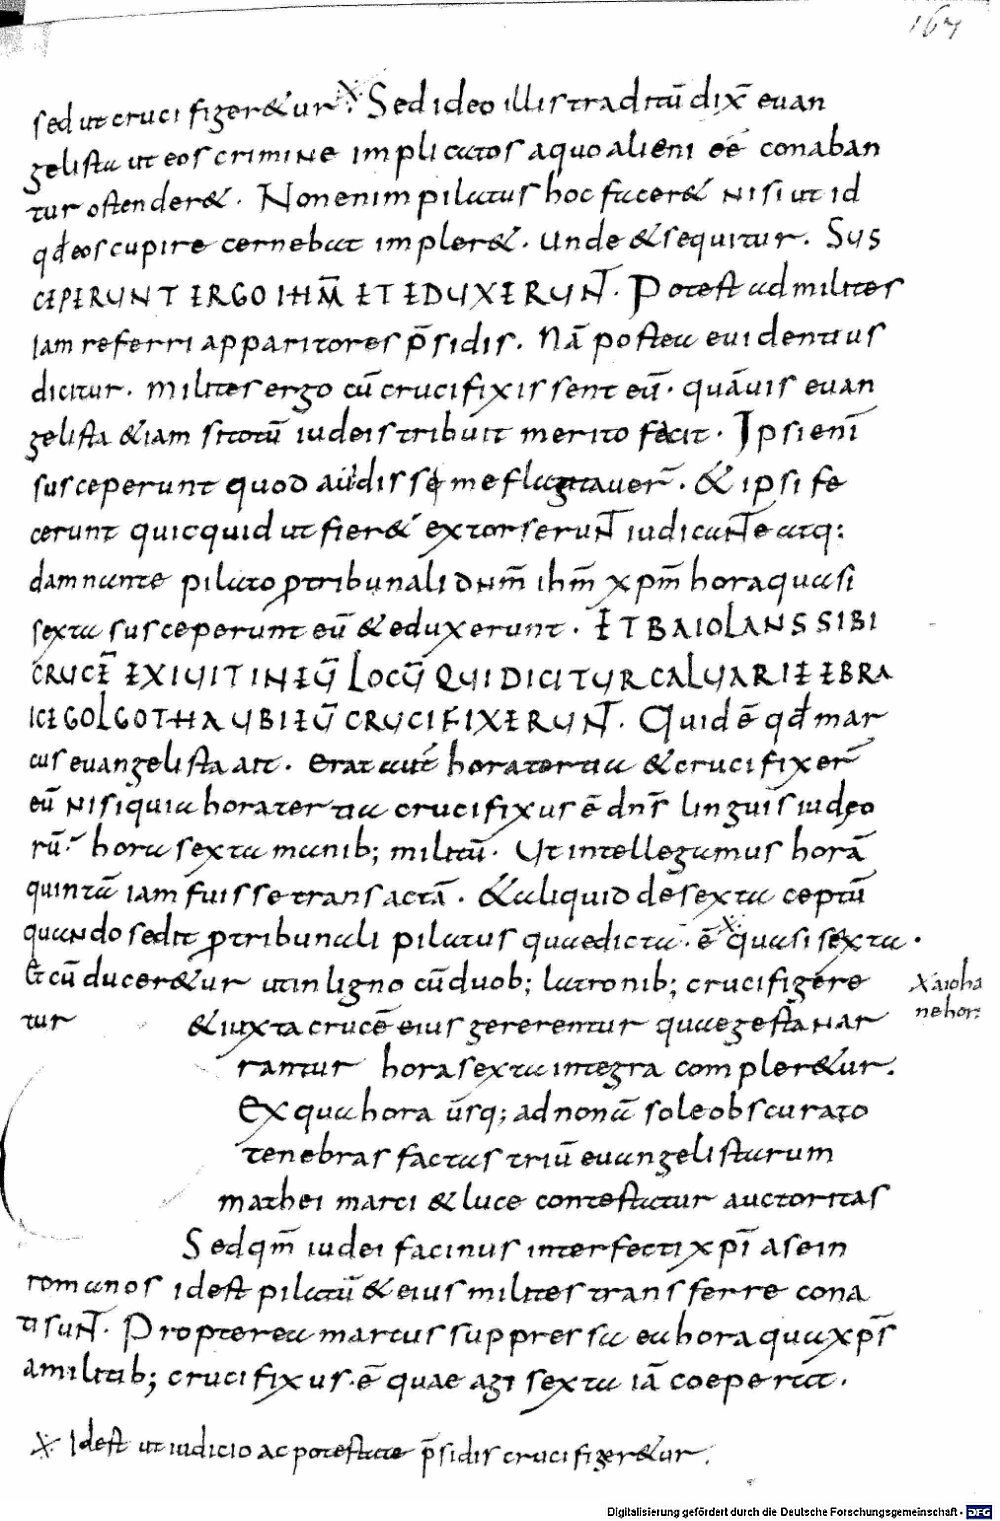 167
sed ut crucifiger&ur. Sed ideo illis traditū dix̄ euan
gelista ut eos crimine implicatos a quo alieni eē conaban
tur ostender&. Non enim pilatus hoc facer& nisi ut id
qđ eos cupire cernebat impler&. Unde & sequitur. SUS
CEPERUNT ERGO IHM̄ ET EDUXERUNT̄. Potest ad milites
iam referri apparitores p̄sidis. Nā postea euidentius
dicitur. milites ergo cū crucifixissent eū. quāuis euan
gelista &iam si totū iudeis tribuit merito fecit. Ipsi eni
susceperunt quod audisse me flagitauer̄. & ipsi fe
cerunt quicquid ut fier& extorserunt iudicante atq:
damnante pilato ꝓ tribunali dnm̄ ihm̄ xpm̄ hora quasi
sexta susceperunt eū & eduxerunt. ET BAIOLANS SIBI
CRUCĒ EXIUIT IN EŪ LOCŪ QUI DICITUR CALUARIE EBRA
ICE GOLGOTHA UBI EŪ CRUCIFIXERUNT̄. Quid ē qđ mar
cus euangelista ait. erat aut̄ hora tertia & crucifixer̄
eū nisi quia hora tertia crucifixus ē dns̄ linguis iudeo
rū. hora sexta manib; militū. Ut intellegamus horā
quintā iam fuisse transactā. & aliquid de sexta ceptū
quando sedit ꝓ tribunali pilatus quae dicta. ē quasi sexta.
Et cū ducer&ur ut in ligno cū duob; latronib; crucifigere
xͣ a ioha
ne hor:
tur & iuxta crucē eius gererentur quae gesta nar
rantur hora sexta integra compler&ur.
Ex qua hora usq; ad nonā sole obscurato
tenebras factas triū euangelistarum
mathei marci & luce contestatur auctoritas
Sed qm̄ iudei facinus interfecti xpi a se in
romanos id est pilatū & eius milites transferre cona
ti sunt̄. Propterea marcus suppressa ea hora qua xps̄
a militib; crucifixus. ē quae agi sexta iā coeperat.
Id est ut iudicio ac potestate p̄sidis crucifiger&ur.
Digitalisierung gefördert durch die Deutsche Forschungsgemeinschaft - DFG